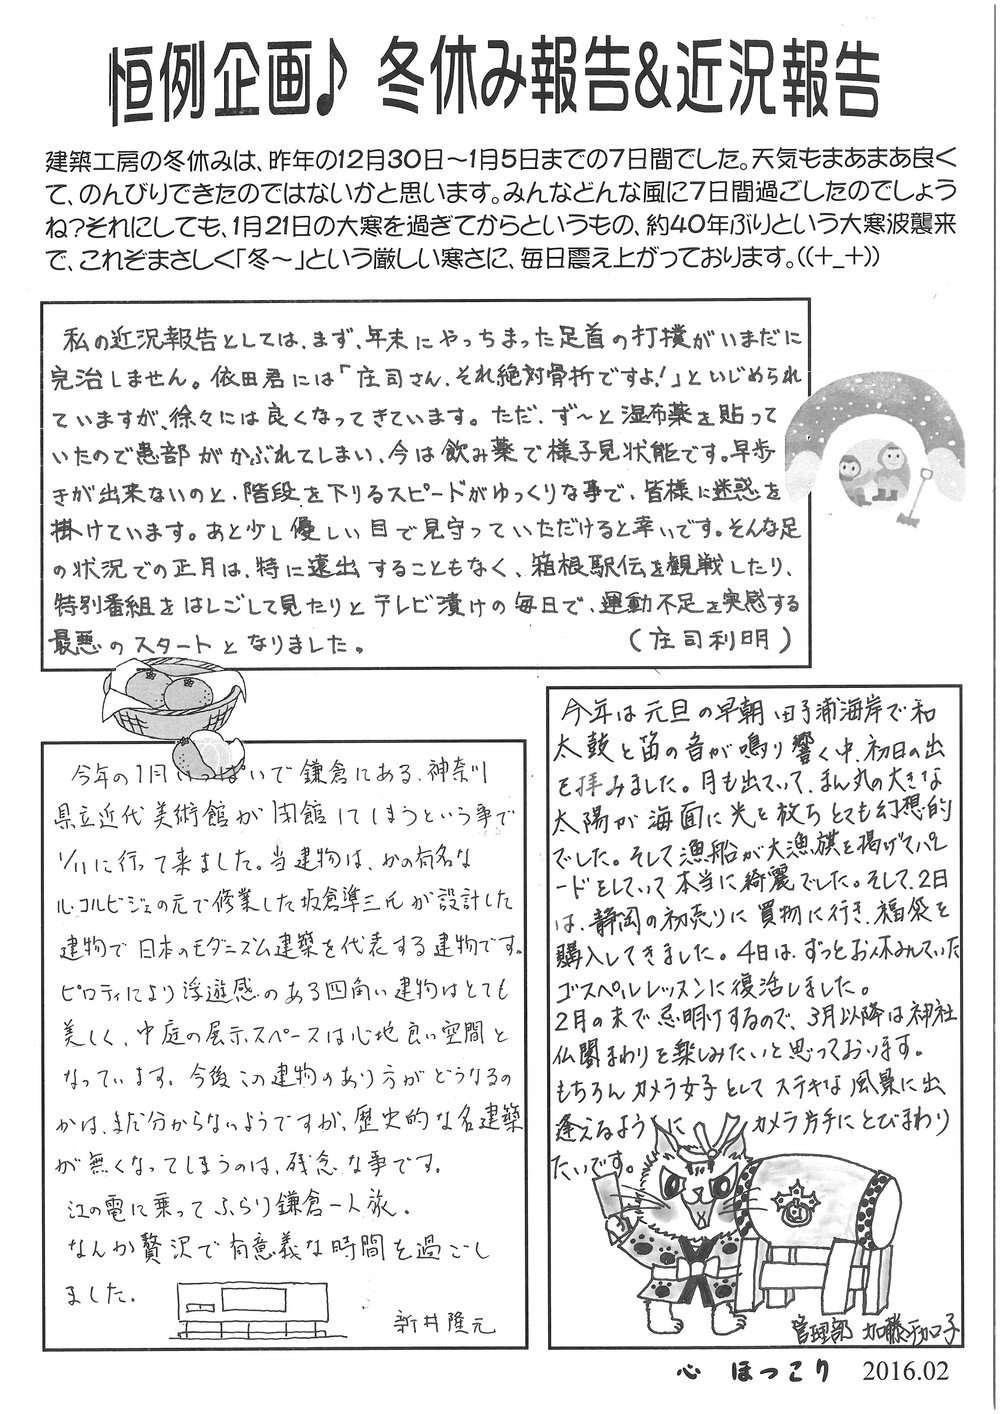 恒例企画♪ 冬休み報告&近況報告
建築工房の冬休みは、昨年の12月30日～1月5日までの7日間でした。天気もまあまあ良く
て、のんびりできたのではないかと思います。みんなどんな風に7日間過ごしたのでしょう
ね?それにしても、1月21日の大寒を過ぎてからというもの、約40年ぶりという大寒波襲来
で、これぞまさしく「冬～」という厳しい寒さに、毎日震え上がっております。((+_+))
私の近況報告としては、まず、年末にやっちまった足首の打撲がいまだに
完治しません。依田君には「庄司さん、それ絶対骨折ですよ!」といじめられ
ていますが、徐々には良くなってきています。ただ、ず～と湿布薬を貼って
いたので患部がかぶれてしまい、今は飲み薬で様子見状態です。早歩
きが出来ないのと、階段を下りるスピードがゆっくりな事で、皆様に迷惑を
掛けています。あと少し優しい目で見守っていただけると幸いです。そんな足
の状況での正月は、特に遠出することもなく、箱根駅伝を観戦したり、
特別番組をはしごして見たりとテレビ漬けの毎日で、運動不足を実感する
最悪のスタートとなりました。 (庄司利明)
今年の1月いっぱいで鎌倉にある、神奈川
県立近代美術館が閉館してしまうという事で
1/11に行って来ました。当建物は、かの有名な
ル・コルビジェの元で修業した坂倉準三氏が設計した
建物で日本のモダニズム建築を代表する建物です。
ピロティにより浮遊感のある四角い建物はとても
美しく、中庭の展示スペースは心地良い空間と
なっています。今後この建物のあり方がどうなるの
かは、まだ分からないようですが、歴史的な名建築
が無くなってしまうのは、残念な事です。
江の電に乗ってふらり鎌倉一人旅。
なんか贅沢で有意義な時間を過ごし
ました。
新井隆元
今年は元旦の早朝 田子浦海岸で和
太鼓と笛の音が鳴り響く中、初日の出
を拝みました。月も出ていて、まん丸の大きな
太陽が海面に光を放ちとても幻想的
でした。そして漁船が大漁旗を掲げてパレ
ードをしていて本当に綺麗でした。そして、2日
は、静岡の初売りに買物に行き、福袋を
購入してきました。4日は、ずっとお休みしていた
ゴスペルレッスンに復活しました。
2月の末で忌明けするので、3月以降は神社
仏閣まわりを楽しみたいと思っております。
もちろんカメラ女子としてステキな風景に出
逢えるように カメラ片手にとびまわり
たいです。
管理部 加藤千加子
心 ほっこり 2016.02